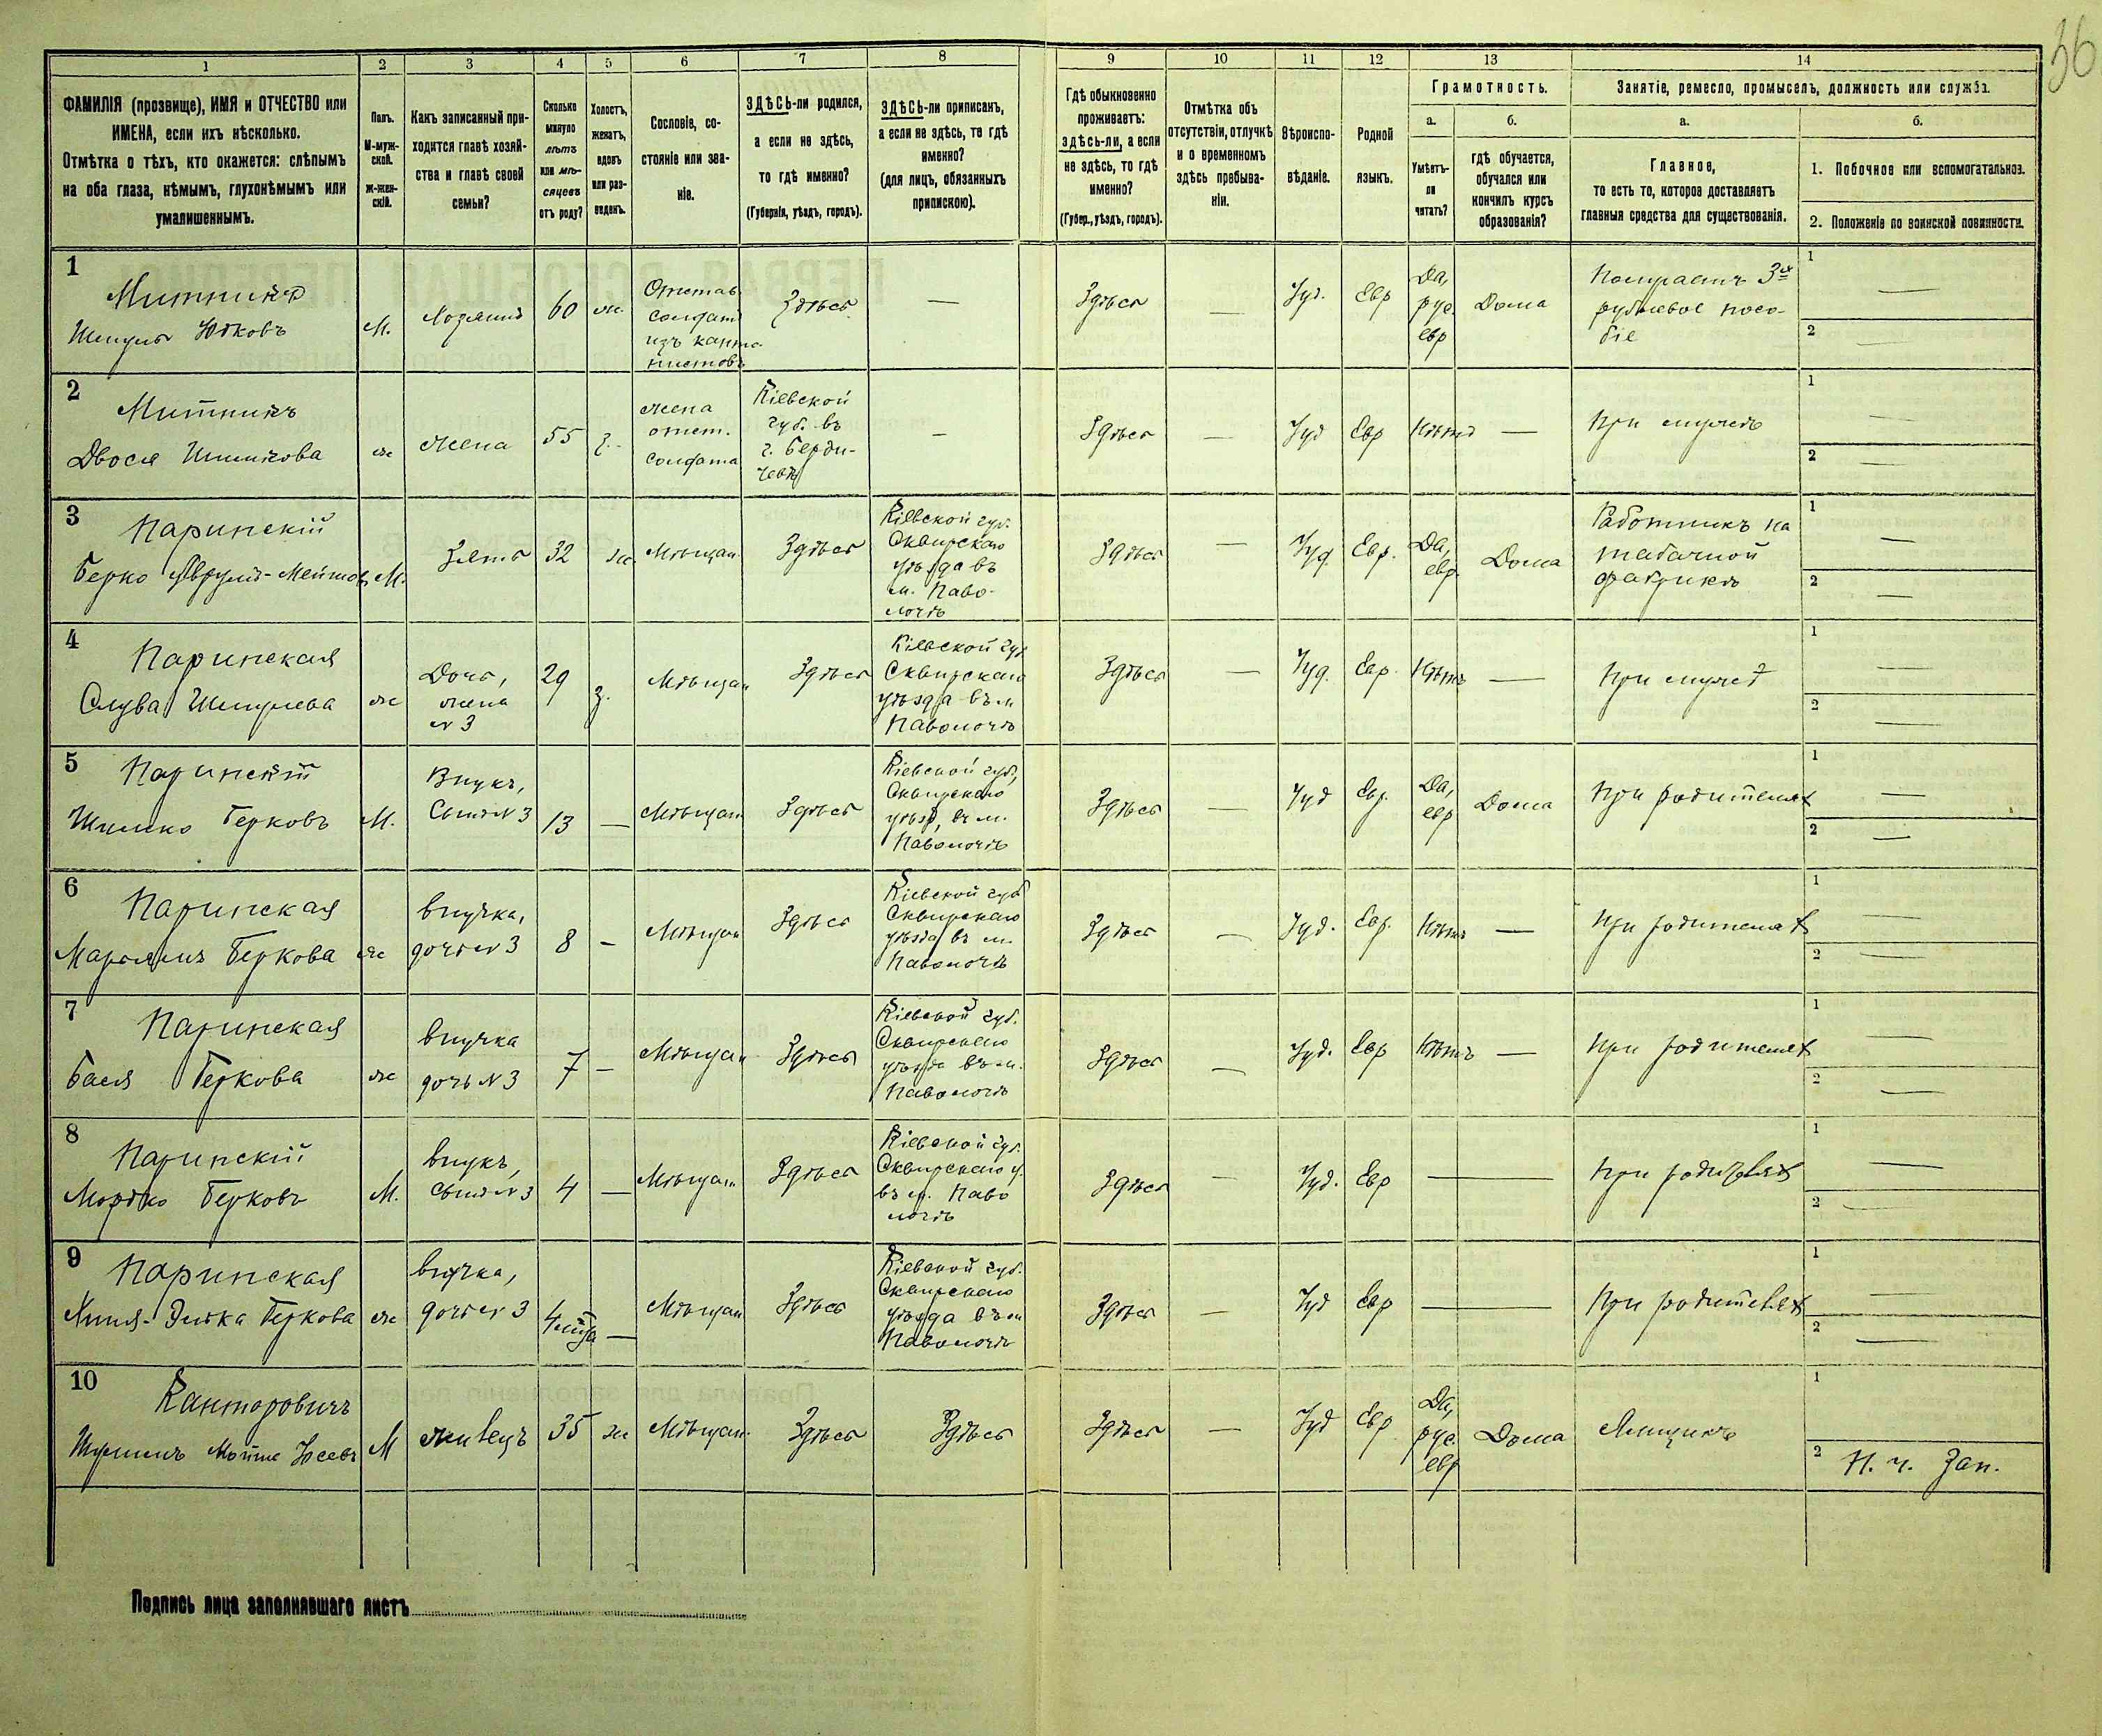 36
1 2 3 4 5 6 7 8 9 10 11 12 13 14
ФАМИЛІЯ (прозвище), ИМЯ и ОТЧЕСТВО или
ИМЕНА, если ихъ нѣсколько.
Отмѣтка о тѣхъ, кто окажется: слѣпымъ
на оба глаза, нѣмымъ, глухонѣмымъ или
умалишеннымъ.
Полъ.
М-муж-
ской.
Ж-жен-
скій.
Какъ записанный при-
ходится главѣ хозяй-
ства и главѣ своей
семьи?
Сколько
минуло
лѣтъ
или мѣ-
сяцевъ
отъ роду?
Холостъ,
женатъ,
вдовъ
или раз-
веденъ.
Сословіе, со-
стояніе или зва-
ніе.
ЗДѢСЬ-ли родился,
а если не здѣсь,
то гдѣ именно?
(Губернія, уѣздъ, городъ).
ЗДѢСЬ-ли приписанъ,
а если не здѣсь, то гдѣ
именно?
(для лицъ, обязанныхъ
припискою).
Гдѣ обыкновенно
проживаетъ:
здѣсь-ли, а если
не здѣсь, то гдѣ
именно?
(Губер., уѣздъ, городъ).
Отмѣтка объ
отсутствіи, отлучкѣ
и о временномъ
здѣсь пребыва-
ніи.
Вѣроиспо-
вѣданіе.
Родной
языкъ.
Грамотность.
а.
Умѣетъ-
ли
читать?
б.
гдѣ обучается,
обучался или
кончилъ курсъ
образованія?
Занятіе, ремесло, промыселъ, должность или служба.
а.
Главное,
то есть то, которое доставляетъ
главныя средства для существованія.
б.
1. Побочное или вспомогательное.
2. Положеніе по воинской повинности.
1
Митникъ
Шмуль Ютковъ
М.
Хозяинъ
60
ж.
Отстав.
солдатъ
изъ канто-
нистовъ
Здѣсь
—
Здѣсь
—
Іуд.
Евр
Да,
рус.
евр
Дома
Получаетъ 3х
рублевое посо-
біе
1 —
2 —
2
Митникъ
Двося
ж
жена
55
з.
жена
отст.
солдата
Кіевской
губ. въ
г. Берди-
чевѣ
—
Здѣсь
—
Іуд
Евр
Нѣтъ
—
При мужѣ
1 —
2 —
3
Паринскій
Берко
М.
Зять
32
ж
Мѣщан.
Здѣсь
Кіевской губ.
Сквирскаго
уѣзда въ
м. Паво-
лочѣ
Здѣсь
—
Іуд.
Евр.
Да,
евр.
Дома
Работникъ на
табачной
фабрикѣ
1 —
2 —
4
Паринская
Слува Шмулева
ж
Дочь,
жена
N 3
29
з.
Мѣщан
Здѣсь
Кіевской губ
Сквирскаго
уѣзда въ м
Паволочѣ
Здѣсь
—
Іуд.
Евр.
Нѣтъ
—
При мужѣ
1 —
2 —
5
Паринскій
Шимко Берковъ
М.
Внукъ,
Сынъ N 3
13
—
Мѣщан
Здѣсь
Кіевской губ.,
Сквирскаго
уѣзд, въ м.
Паволочѣ
Здѣсь
—
Іуд
Евр.
Да,
евр
Дома
При родителях
1 —
2 —
6
Паринская
Маріямъ Беркова
ж
внучка,
дочь N 3
8
—
Мѣщан
Здѣсь
Кіевской губ
Сквирскаго
уѣзда въ м.
Паволочѣ
Здѣсь
—
Іуд.
Евр.
Нѣтъ
—
При родителях
1 —
2 —
7
Паринская
Бася Беркова
ж
внучка
дочь N 3
7
—
Мѣщан
Здѣсь
Кіевской губ.
Сквирскаго
уѣзда въ м.
Паволочѣ
Здѣсь
—
Іуд.
Евр
Нѣтъ
—
При родителях
1 —
2 —
8
Паринскій
Мортко Берковъ
М.
внукъ,
Сынъ N 3
4
—
Мѣщан.
Здѣсь
Кіевской губ.
Сквирскаго у.
въ м. Паво
лочѣ
Здѣсь
—
Іуд.
Евр
—
При родителях
1 —
2 —
9
Паринская
Хиня-Элька Беркова
ж
внучка,
дочь N 3
4 м-ца
—
Мѣщан
Здѣсь
Кіевской губ.
Сквирскаго
уѣзда въ м
Паволочѣ
Здѣсь
—
Іуд
Евр
—
При родителях
1 —
2 —
10
Канторовичъ
Шулимъ Мойше Іосевъ
М
жилецъ
35
ж
Мѣщан.
Здѣсь
Здѣсь
Здѣсь
—
Іуд
Евр
Да,
рус.
евр
Дома
1
2 Н. ч. Зап.
Подпись лица заполнявшаго листъ